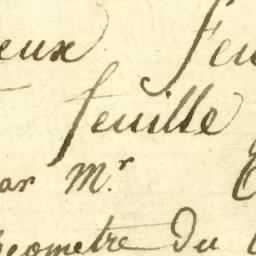 eux feu
feuille
ar Mr
Geometre du